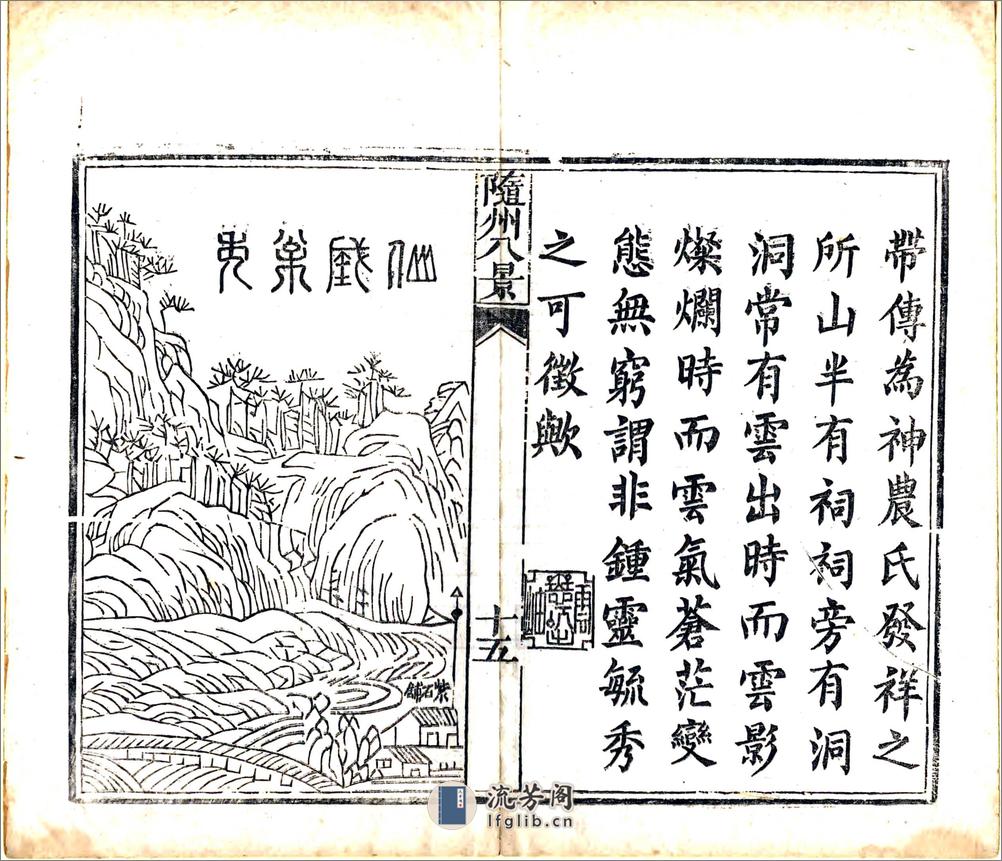 帶傳為神農氏發祥之
所山半有祠祠旁有洞
洞常有雲出時而雲影
燦爛時而雲氣蒼茫變
態無窮謂非鍾靈毓秀
之可徵歟
隨州八景
十五
仙
紫石鋪
流芳阁
lfglib.cn